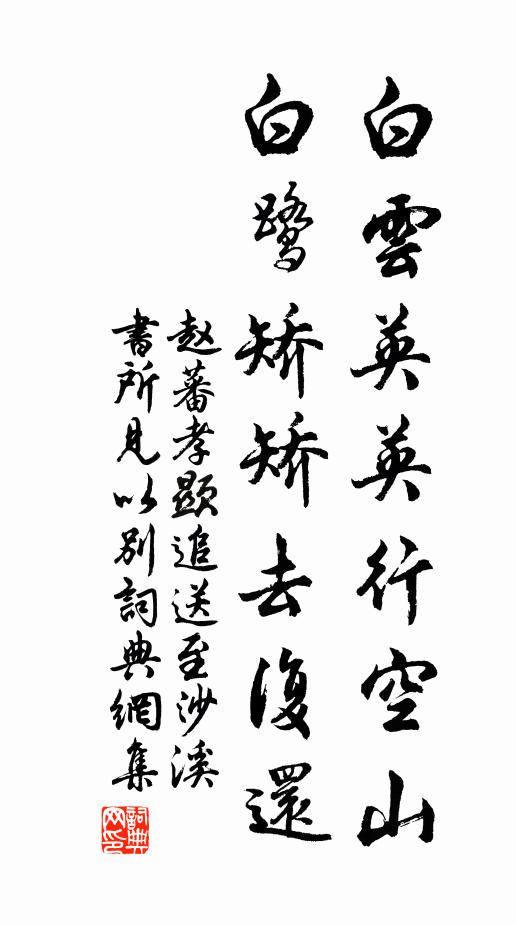 白雲英英行空山
白鷺矯矯去復還
赵蕃孝顯追送至沙溪
書所見以别詞典網集
詞典網印